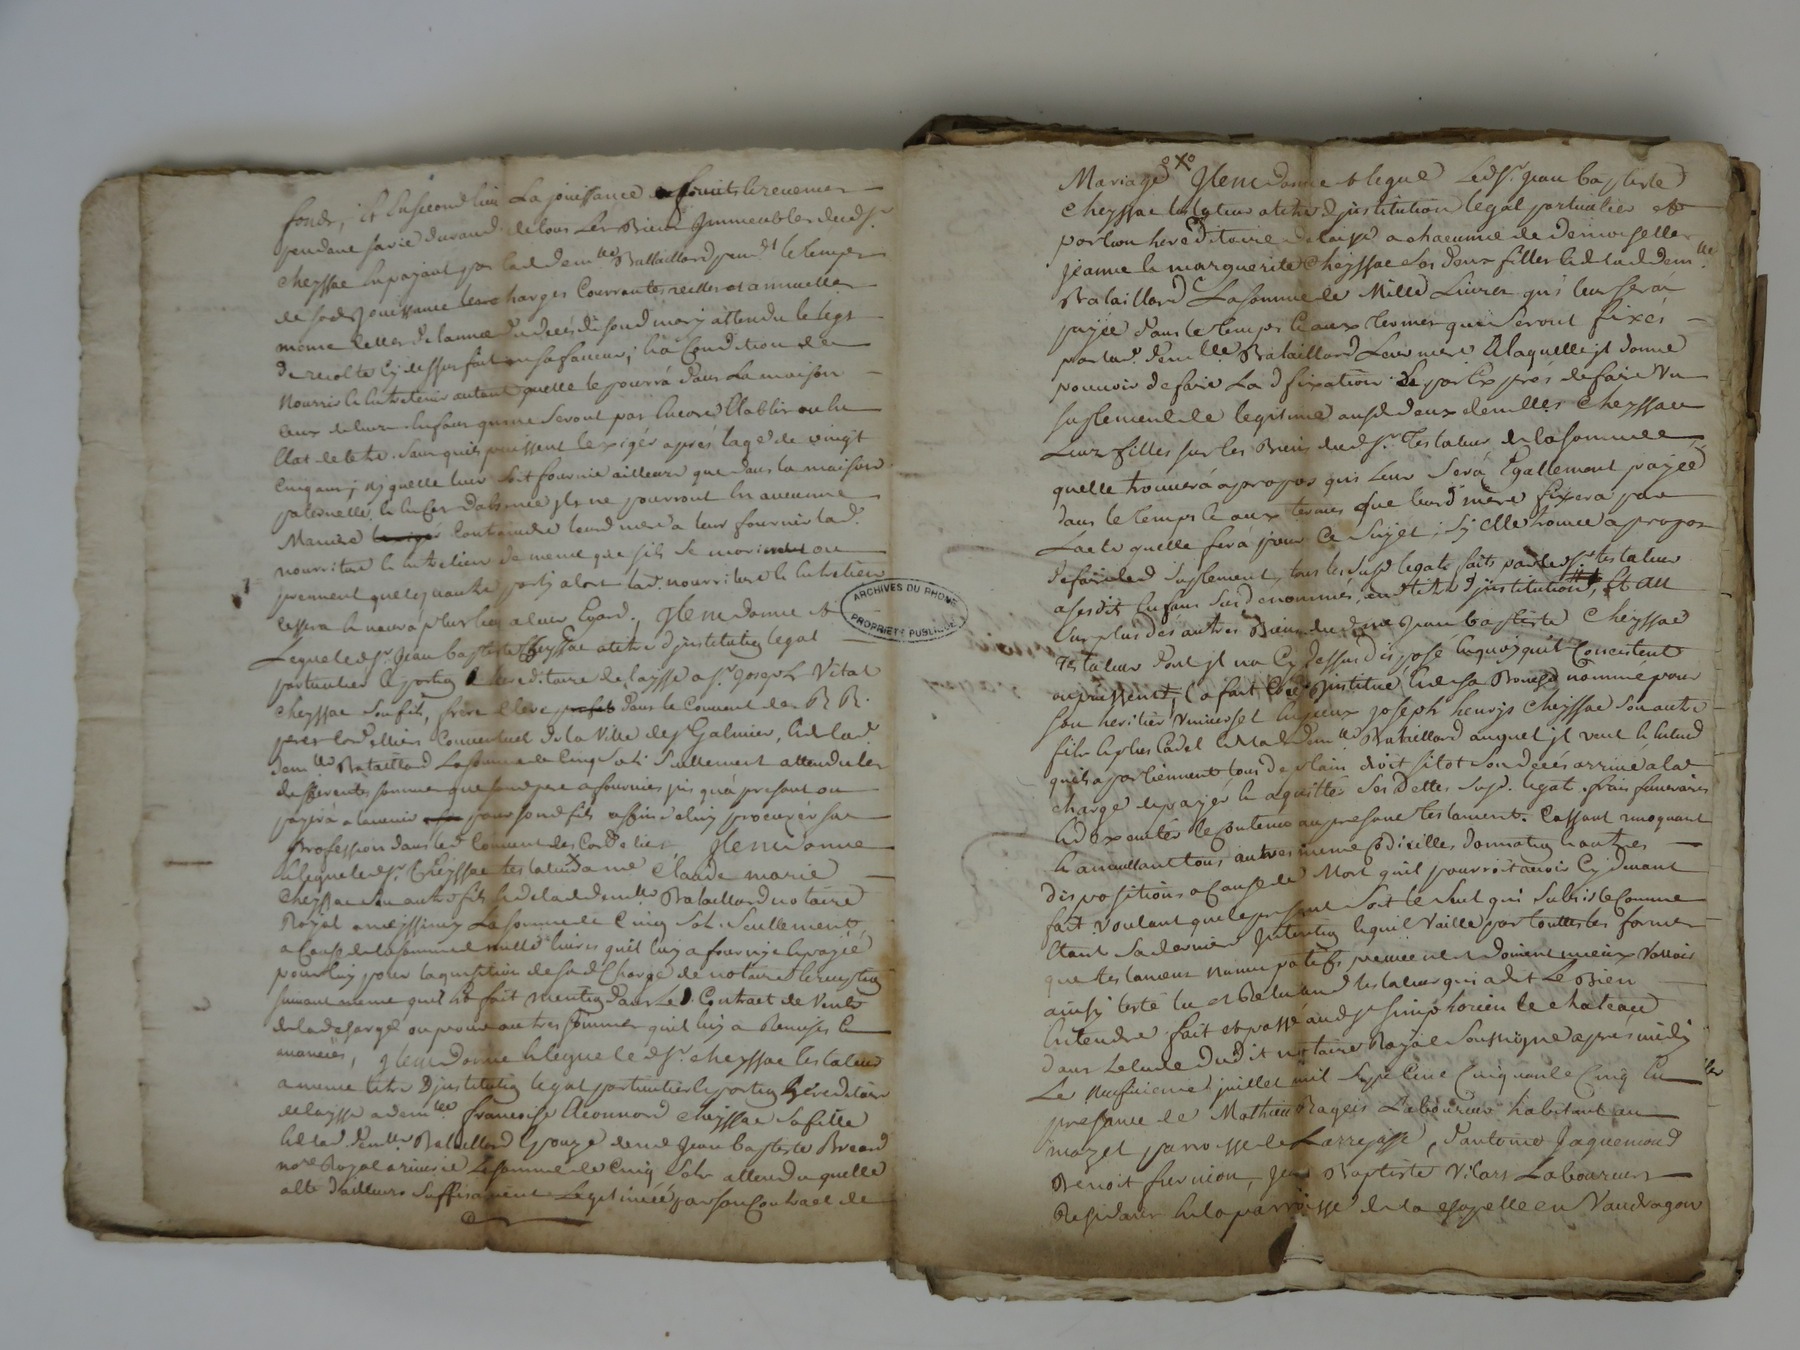 fonds, Et En second lieu La jouissance & fruits & revenus
pendent sa vie durand de tous Les Biens Immeubles dud. Sr.
Cheyssac En payant par lad. demlle Bataillard pendt le temps
de sad. Jouissance les charges Courrantes et annuelles
meme Celles de lannée du décés de sond. mary attendu le legs
de recolte Cy dessus fait en sa faveur, à la Condition de
Nourrir & Entretenir autant quelle le pourrá dans La maison
Ceux de leurs Enfans qui ne Seront pas Encore Etablis ou En
Etat de letre. Sans quils puissent lexigér aprés lage de vingt
Cinq ans, ny quelle leur soit fournie ailleurs que dans la maison
paternelle, & En Cas dabsence jls ne pourront En aucunne
Maniere Contraindre leurd. mere a leur fournir lad.
nourriture & Entretien de meme que sils se marioient ou
prennent quelquautre party alors lad. nourriture & Entretien
Cessera & naura plus lieu a leur Egard., Jtem donne &
Legue led. Sr. Jean baptiste Cheyssac a titre djnstitution legat
particulier & portion hereditaire delaysse a Sr. Joseph Vital
Cheyssac Son fils, frère Eleve dans le Couvent des RR.
peres Cordelliers Conventuel de la Ville de St Galmier, & de lad.
demlle Bataillard La somme de Cinq Sols Seullement attendu les
differentes sommes que sond. pere a fournies jusquá present ou
payerá a lavenir pour sond. fils affin de luy procurér sa
Profession dans led. Couvent des Cordeliers Jtem donne
& legue led. Sr. Cheyssac testateur a me Claude marie
Cheyssac Son autre fils & de lad. demlle Bataillard notaire
Royal a meissimy La somme de Cinq Sols Seullement,
a Cause de la somme mille livres quil luy a fournye & payée
pour luy pour laquisition de sad. Charge de notaire & reception
suivant meme quil Est fait mention dans Led. Contract de Vente
de lad. charge ou pour autres sommes quil luy a Remises &
avancées, Jtem donne & legue led. Sr. Cheyssac testateur
a meme titre djnstitution legat particulier & portion héréditaire
delaysse a demlle francoise Cheyssac Sa fille
& de lad. demlle Bataillard Epouze de me Jean baptiste Breard
nore Royal a riverie La somme de Cinq Sols attendu quelle
Est dailleurs Suffisament Legitimée par son Contract de
Mariage Jtem donne & legue Led. Sr. Jean baptiste
Cheyssac testateur a titre djnstitution legat particulier &
portion hereditaire delaisse a chacunne de demoiselles
jeanne & marguerite Cheyssac Ses deux filles & de lad. demlle
Bataillard La somme de Mille Livres qui leur será
payée dans le temps & aux termes qui seront fixés
par lad. demlle Bataillard Leur mere A laquelle jl donne
pouvoir de faire Lad. fixation & par Exprés de faire Un
suplement de legitime ausd. deux demlles Cheyssac
Leurs filles sur les Biens dud. Sr. Testateur de la somme
quelle trouverá á propos qui Leur Será Egallement payée
dans le temps & aux termes que leurd. mére fixera par
Lacte quelle ferá pour Ce Sujet, Sy Elle trouve a propos
de faire led. Suplement, tous lesusd. legats faits par led. Sr. testateur
a sesdits Enfans susdenommés, En titre djnstitution, Et au
surplus des autres Biens dud. Sr. Jean baptiste Cheyssac
Testateur dont jl na Cy dessus disposé En quoy quil Concistent
ou puissent, & a fait Créé & jnstitué & de sa Bouche nommé pour
son heritier Universel Sieur Joseph henry Cheyssac Son autre
fils & plus Cadet & de lad. demlle Bataillard auquel jl veut & Entend
quils apartiennent tous de plain droit sitot Son décés arrivé a la
charge de payer & aquitter Ses Dettes Susd. legats, frais funeraires
& dexecuter le Contenu au present testament. Cassant revoquant
& annullant tous autres meme Codicilles, donnations & autres
dispositions a Cause de Mort quil pourroit avoir Cy devant
fait. Voulant que le present Soit le Seul qui Subsiste Comme
Etant Sa derniere Jntention & quil Vaille par touttes les formes
que testament nuncupatif peuvent & doivent mieux Valloir
ainsy testé lu et Relu aud. testateur qui a dit Le Bien
Entendre fait et passé aud. St Simphorien le chateau
dans Letude dudit notaire Royal Soussigné aprés midy
Le neufvieme juillet mil Sept Cent Cinquante Cinq En
presence de Mathieu Rageis Laboureur habitant au
mazel parroisse de Larrejasse, dantoine Jaquemond
Benoit fermion, Jean Baptiste Vilars Laboureurs
Residans En la parroisse de la chapelle en Vaudragon
ARCHIVES DU RHÔNE
PROPRIÉTÉ PUBLIQUE